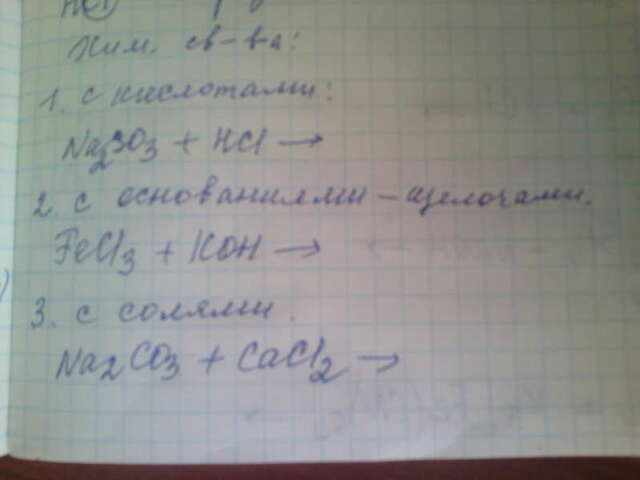 Хим. св-ва:
1. с кислотами:
Na2SO3 + HCl →
2. с основаниями - щелочами.
FeCl3 + KOH →
3. с солями.
Na2CO3 + CaCl2 →